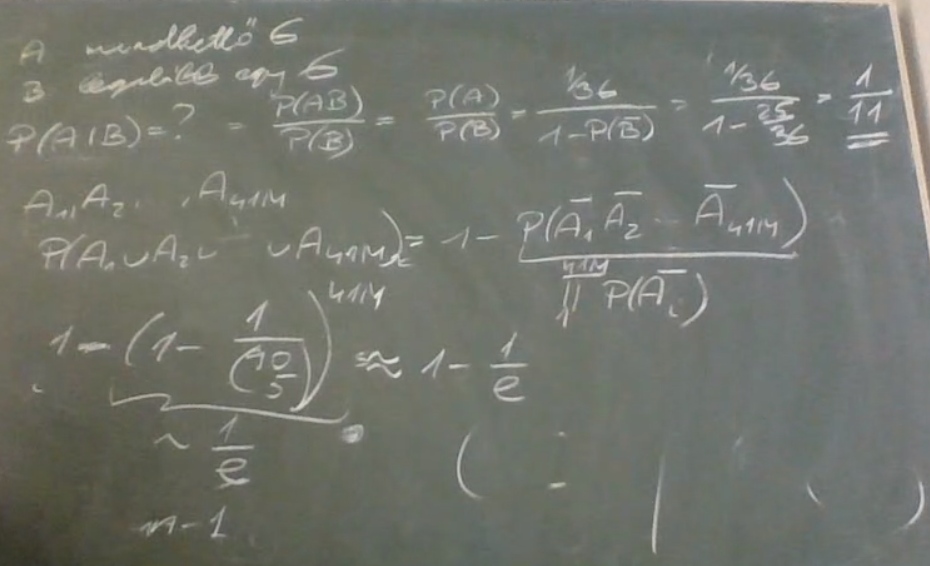 A mindkettő 6
B legalább egy 6
P(A|B)=? = P(AB)/P(B) = P(A)/P(B) = (1/36)/(1-P(B̄)) = (1/36)/(1-25/36) = 1/11
A₁, A₂, , A₄₁M
P(A₁∪A₂∪ ∪A₄₁M) = 1 - P(Ā₁ Ā₂ Ā₄₁M)
∏ P(Āᵢ)
1-(1 - 1/(90 5))^41M ≈ 1 - 1/e
~ 1/e
n-1